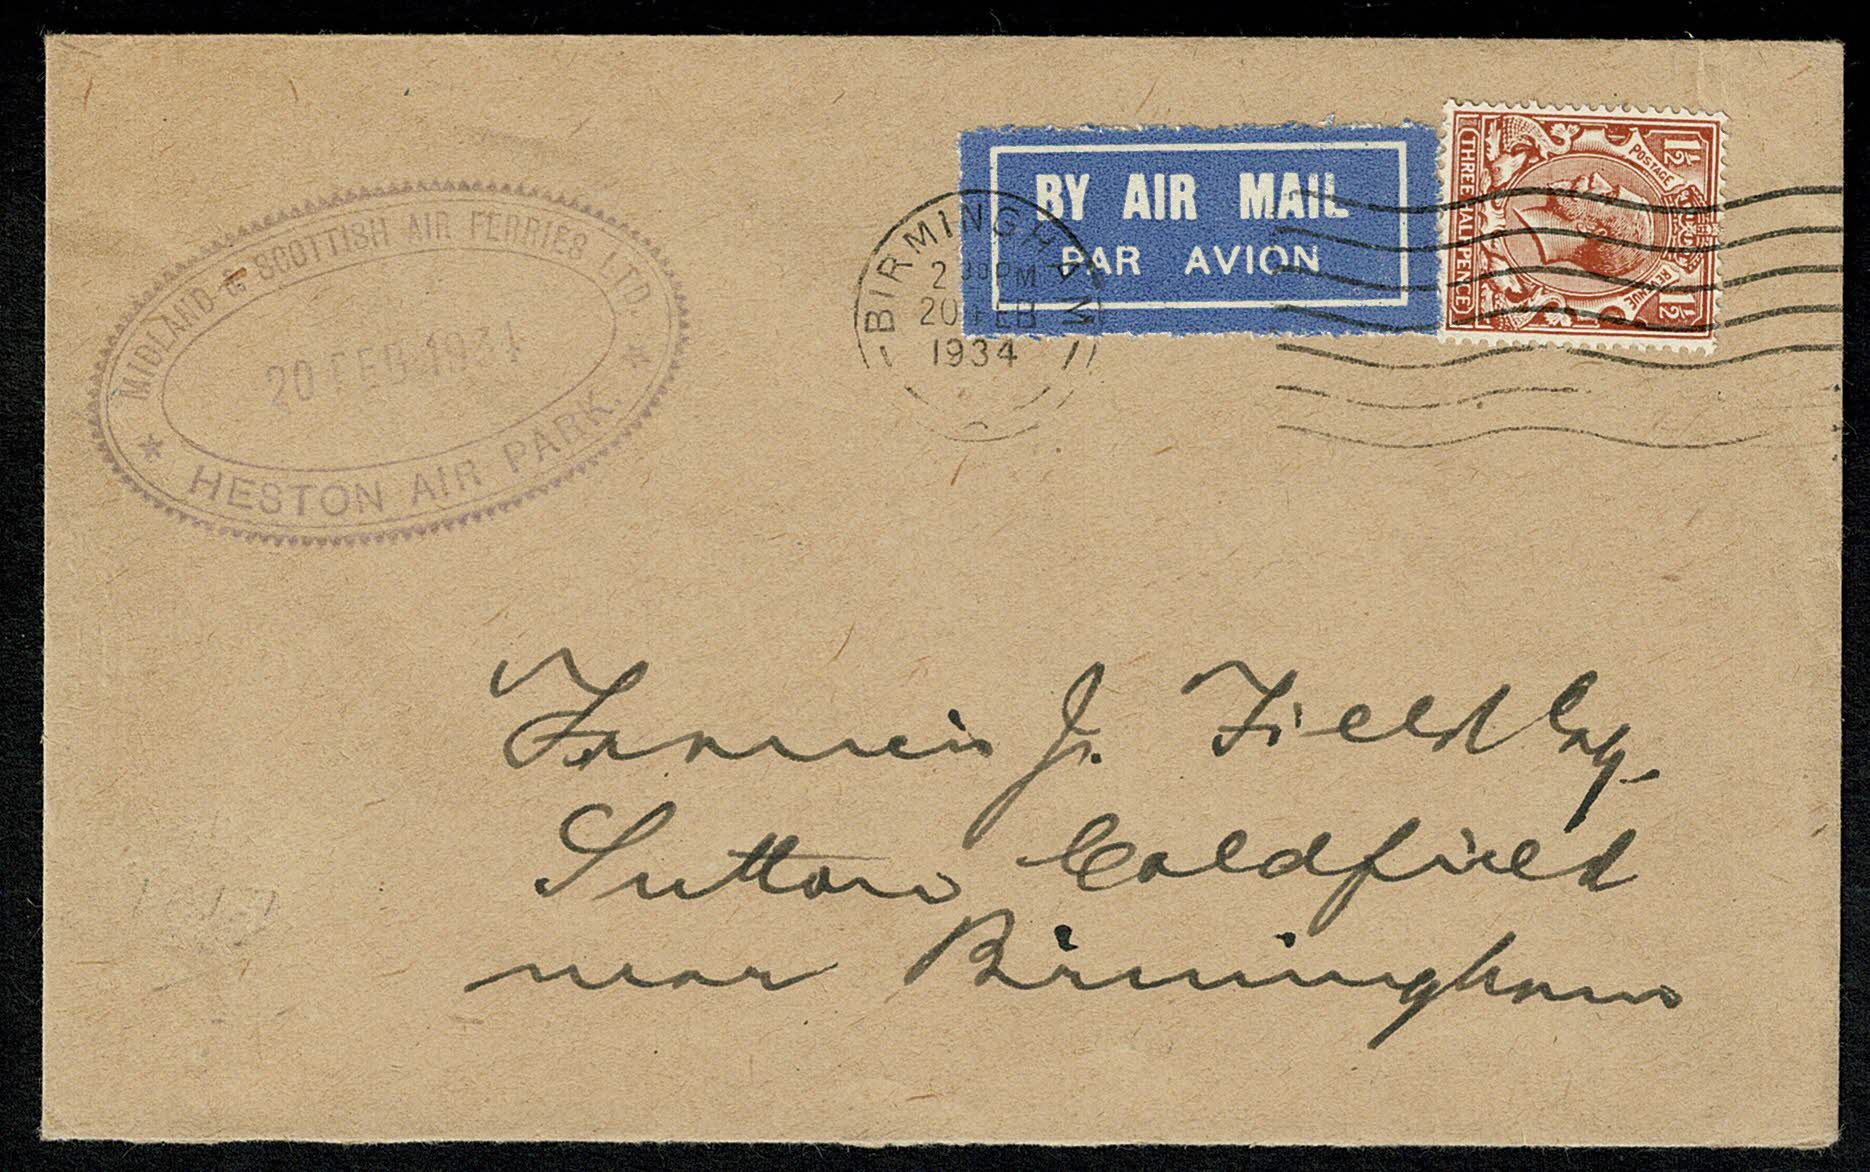 MIDLAND & SCOTTISH AIR FERRIES LTD.
20 FEB 1934
* HESTON AIR PARK. *
BIRMINGHAM
2 30 PM
20 FEB
1934
BY AIR MAIL
PAR AVION
1½ POSTAGE REVENUE 1½
THREE HALFPENCE
Francis J. Field Esq.
Sutton Coldfield
near Birmingham